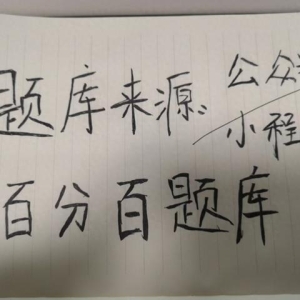 题库来源: 公众
小程
百分百题库